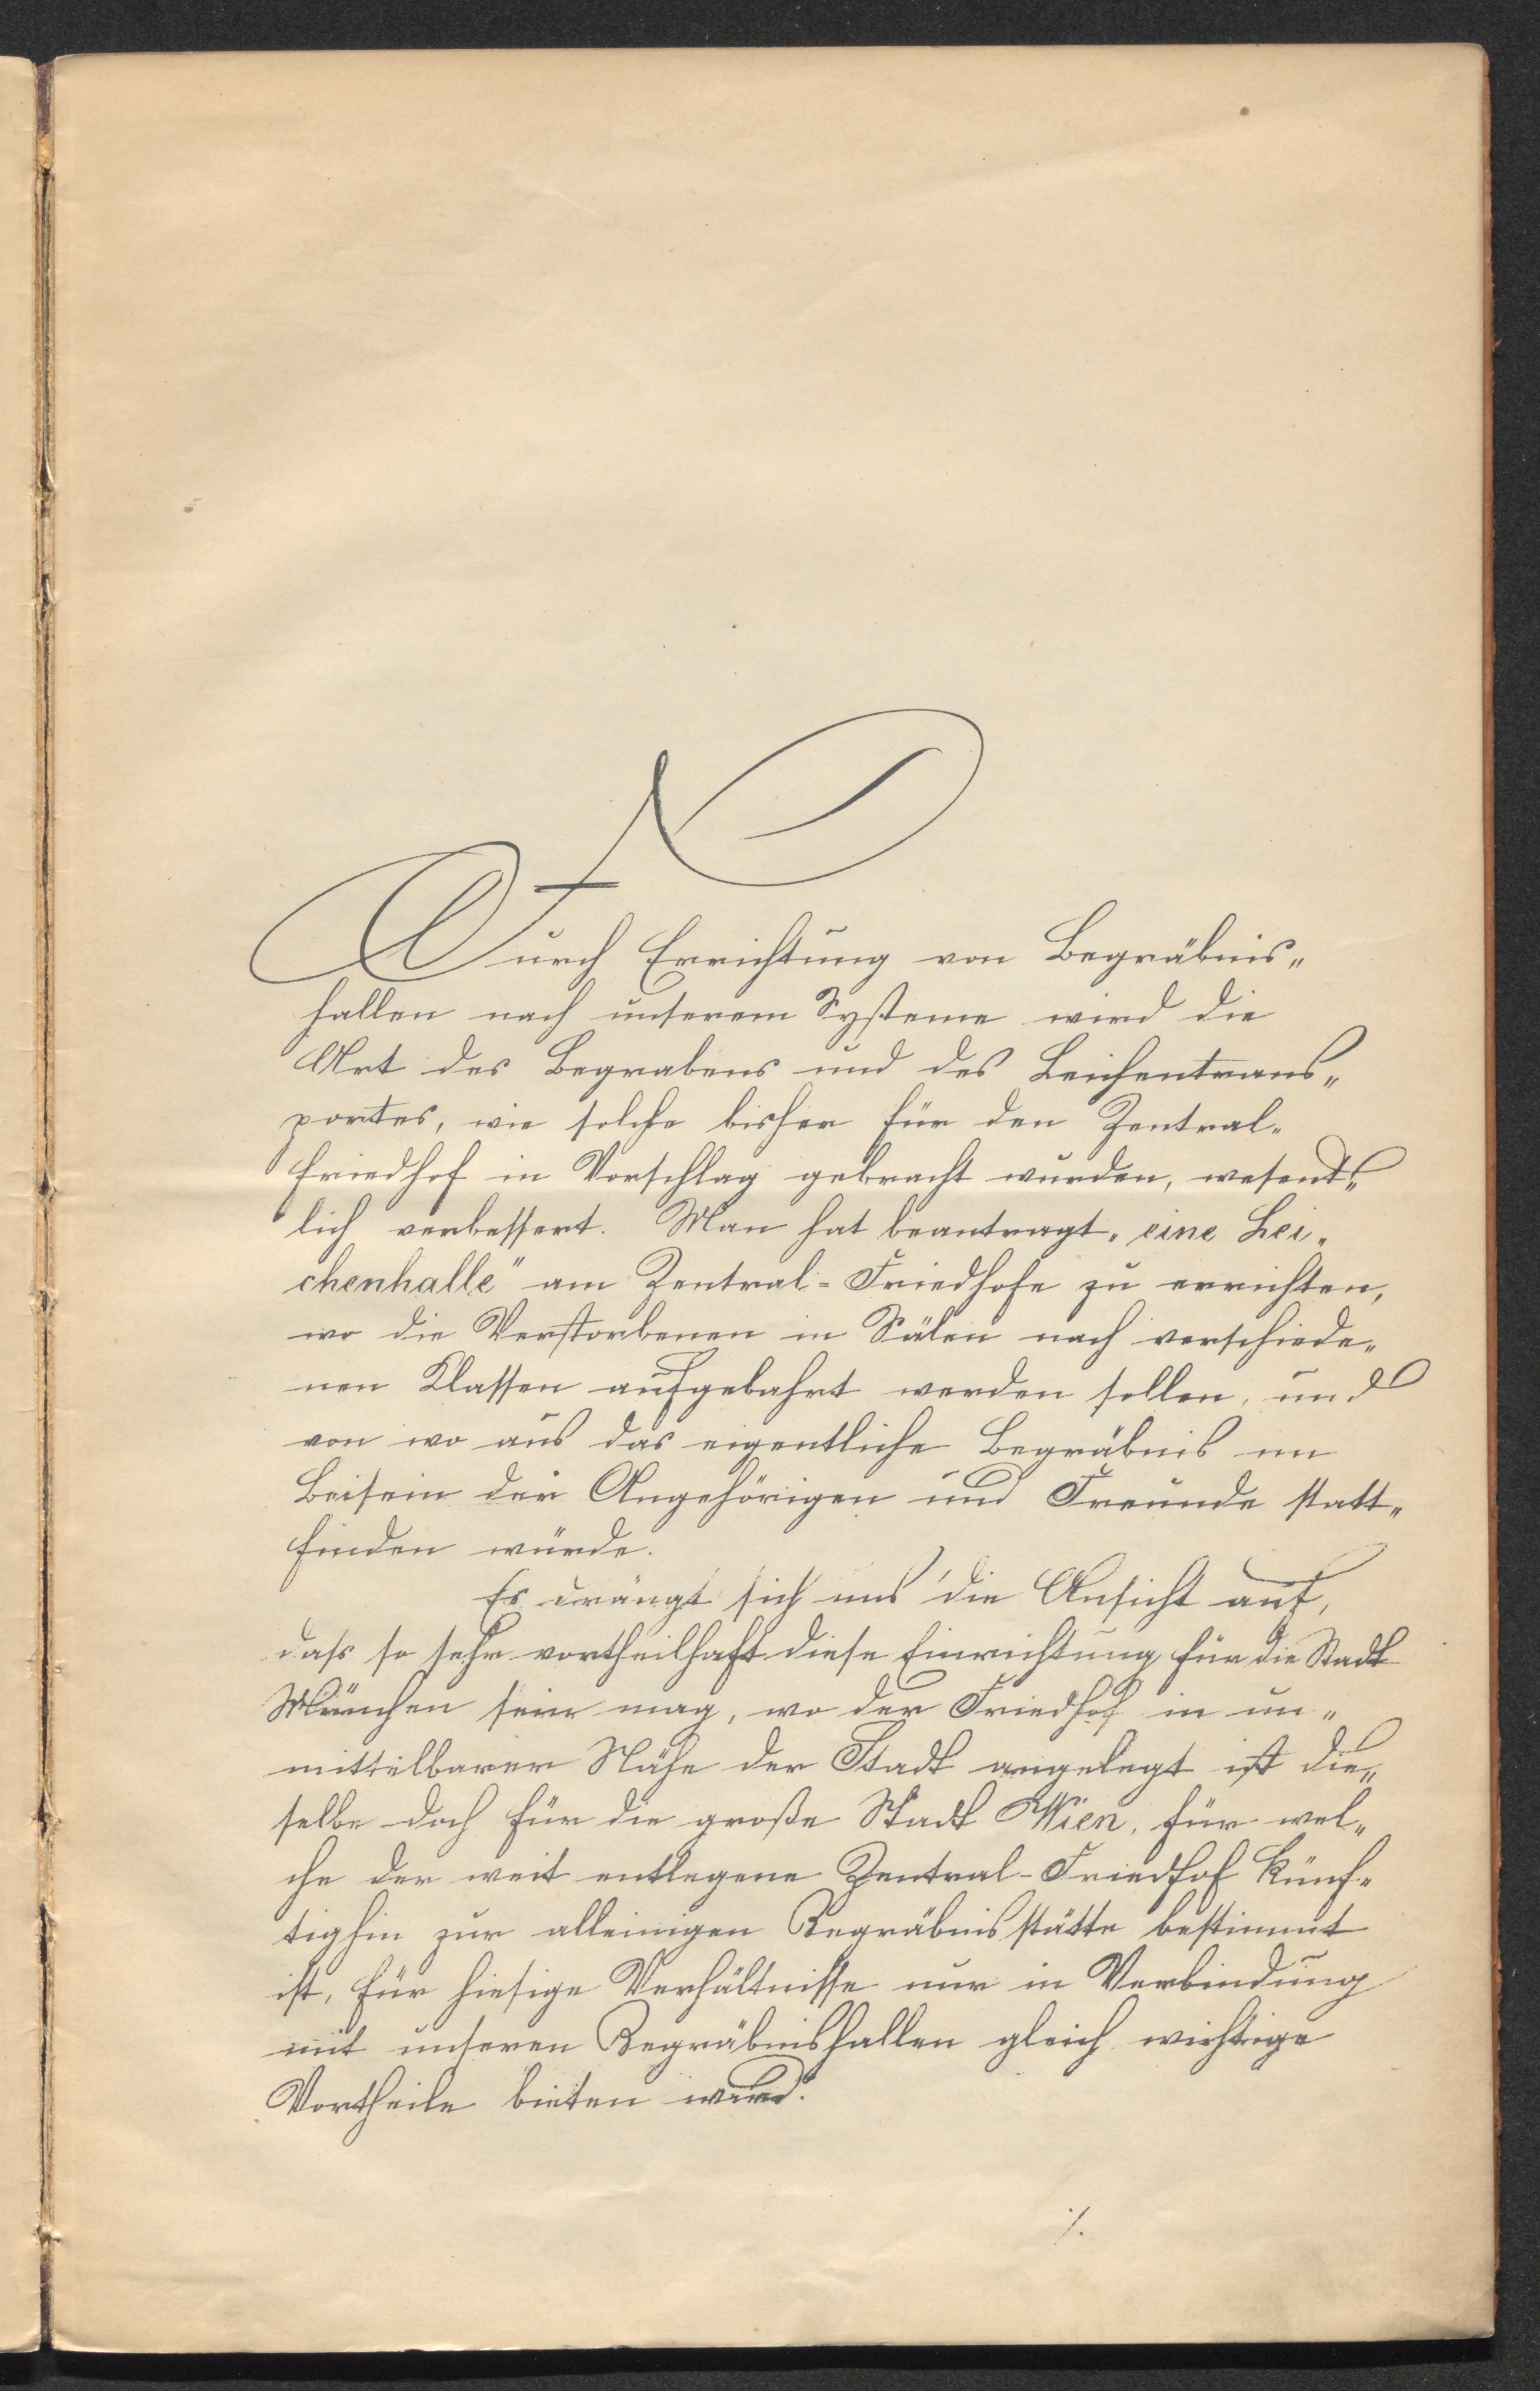 Durch Errichtung von Begräbnis„
hallen nach unserem Systeme wird die
Art des Begrabens und des Leichentrans„
portes, wie solche bisher für den Zentral„
friedhof in Vorschlag gebracht wurden, wesent„
lich verbessert. Man hat beantragt „eine Lei„
chenhalle" am Zentral-Friedhofe zu errichten,
wo die Verstorbenen in Sälen nach verschiede„
nen Klassen aufgebahrt werden sollen, und
von wo aus das eigentliche Begräbnis im
Beisein der Angehörigen und Freunde statt„
finden würde.
Es drängt sich uns die Ansicht auf,
dass so sehr vortheilhaft diese Einrichtung für die Stadt
München sein mag, wo der Friedhof in un„
mittelbarer Nähe der Stadt angelegt ist die„
selbe doch für die große Stadt Wien, für wel„
che der weit entlegene Zentral-Friedhof künf„
tighin zur alleinigen Begräbnisstätte bestimmt
ist, für hiesige Verhältnisse nur in Verbindung
mit unseren Begräbnishallen gleich wichtige
Vortheile bieten wird.
./.